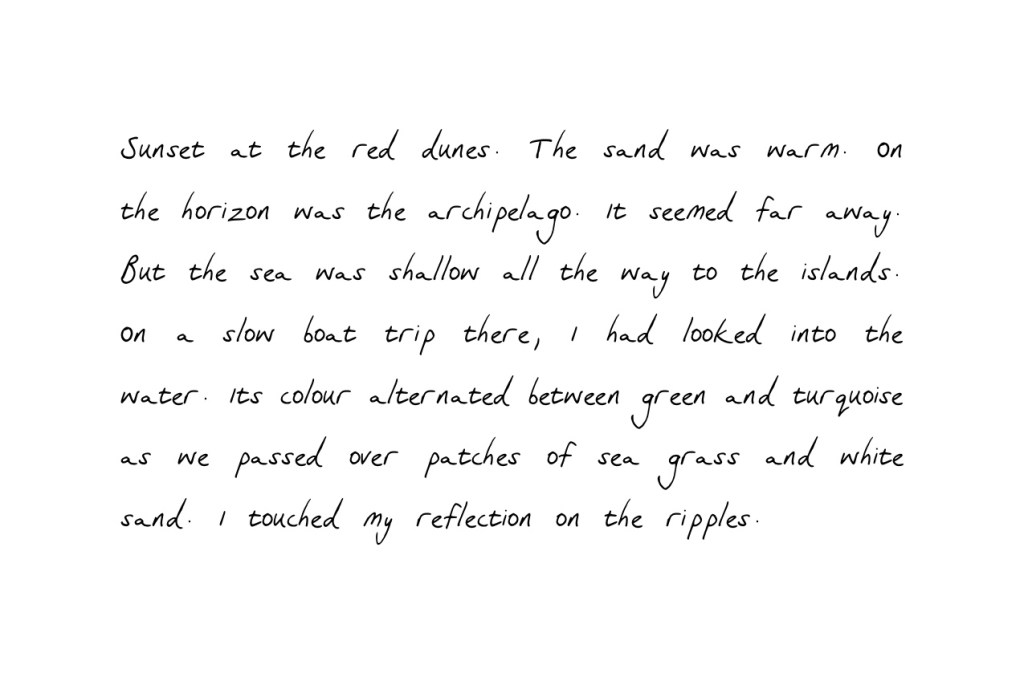 Sunset at the red dunes. The sand was warm. On
the horizon was the archipelago. It seemed far away.
But the sea was shallow all the way to the islands.
On a slow boat trip there, I had looked into the
water. Its colour alternated between green and turquoise
as we passed over patches of sea grass and white
sand. I touched my reflection on the ripples.